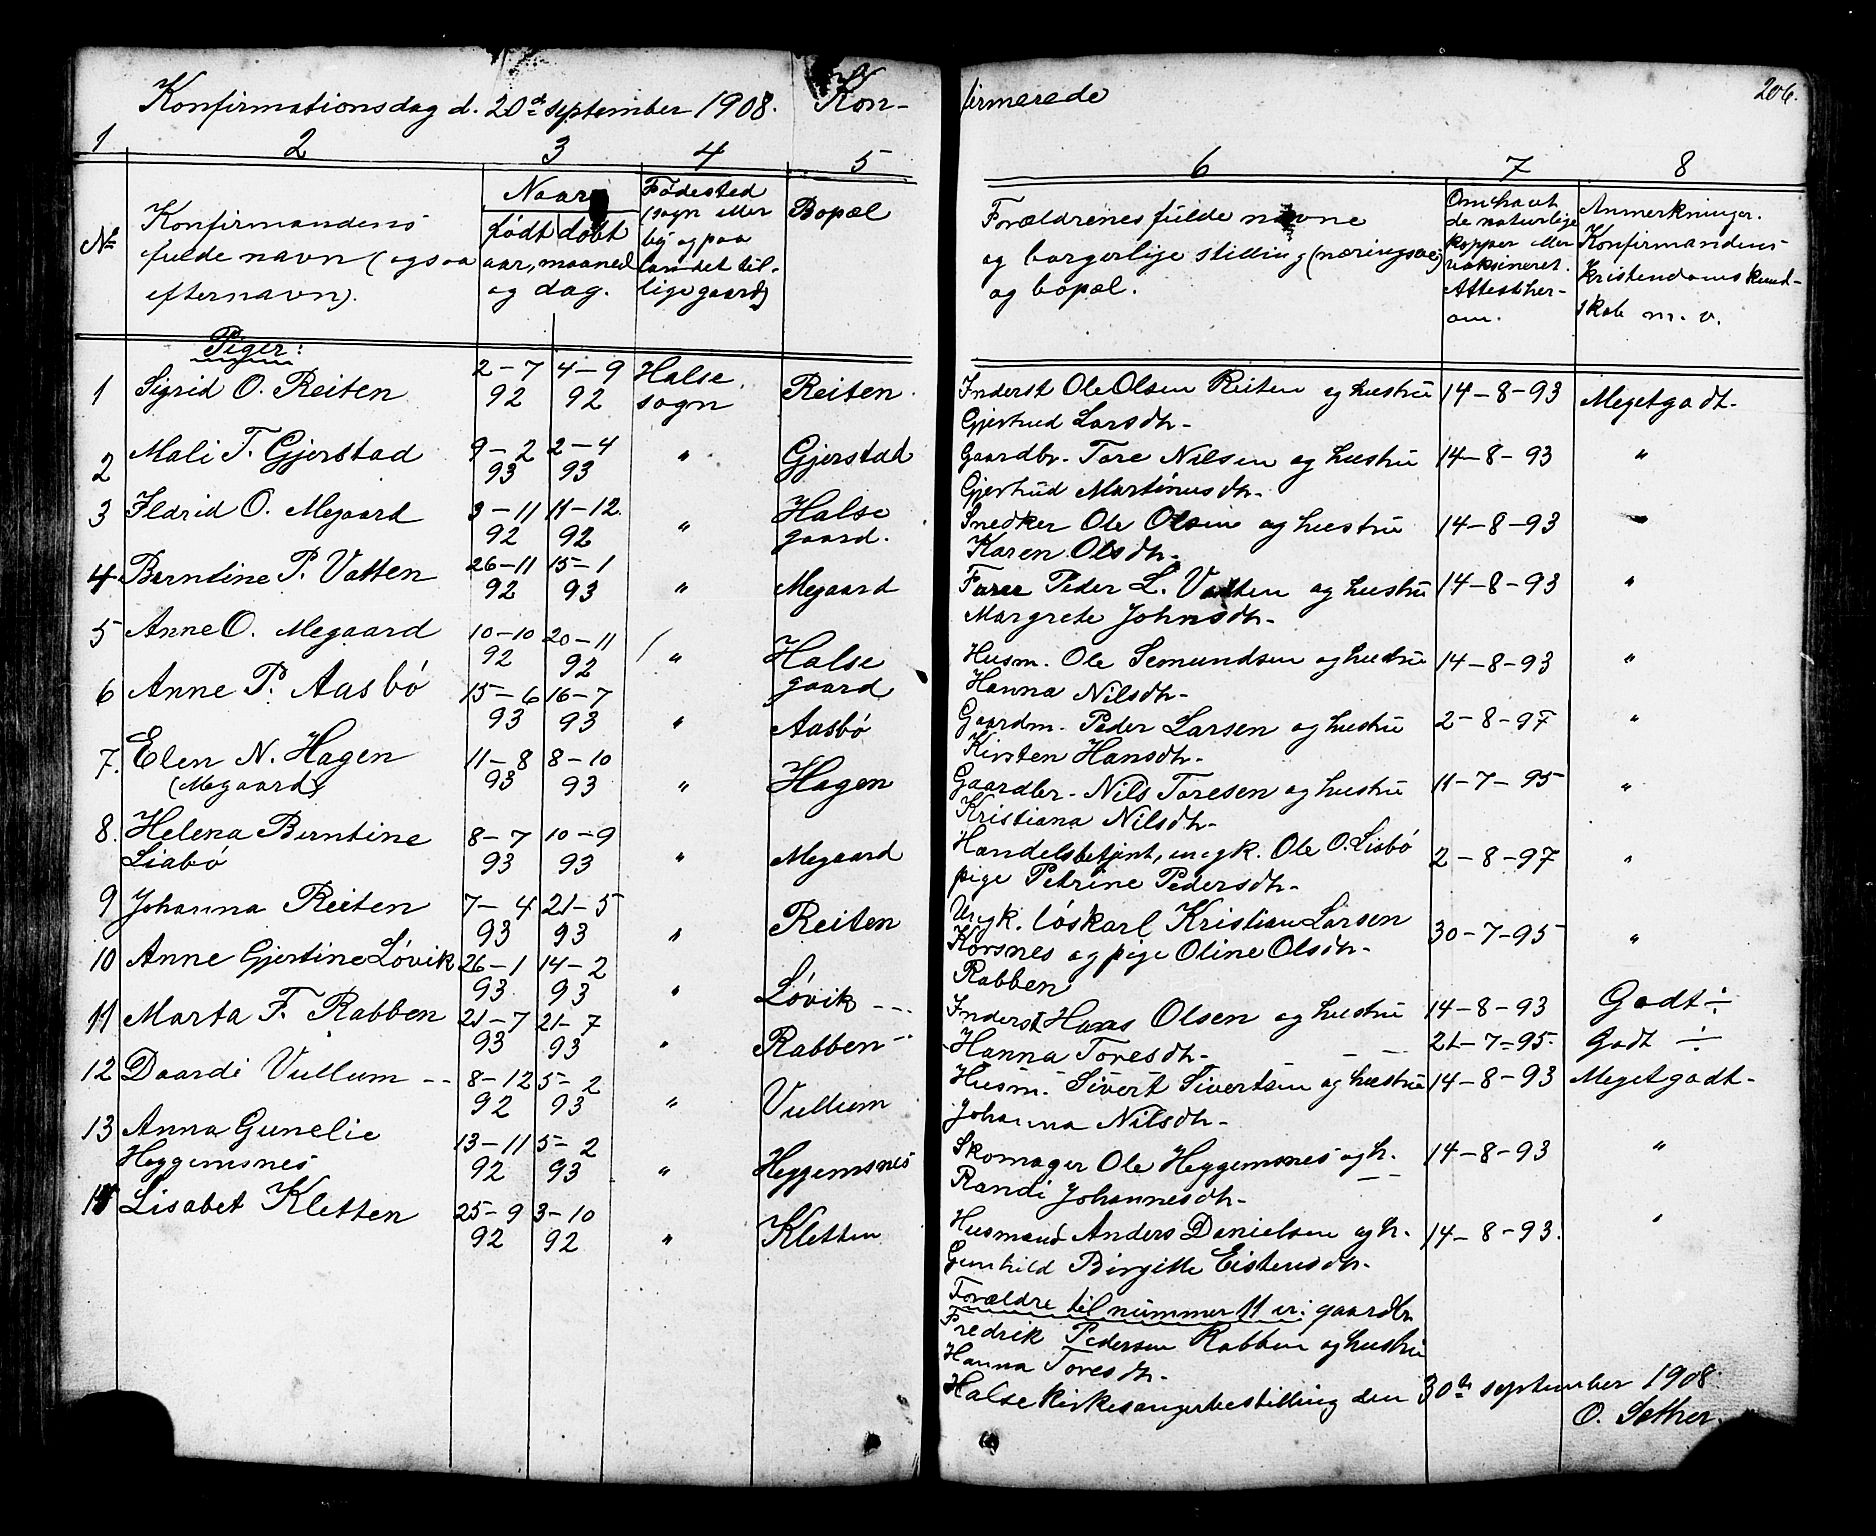 Konfirmationsdag d. 20de september 1908. Kon-
firmerede
206.
1 2 3 4 5
6 7 8
No
Konfirmandens
fulde navn (ogsaa
efternavn).
Naar
født døbt
aar, maaned
og dag.
Fødested
(sogn eller
by og paa
landet til-
lige gaard)
Bopæl
Forældrenes fulde navne
og borgerlige stilling (næringsvei)
og bopæl.
Om havt
de naturlige
kopper eller
vaksineret.
Attest her-
om.
Anmerkninger.
Konfirmandens
kristendomskund-
skab m. v.
Piger:
1 Sigrid O. Reiten 2-7 92 4-9 92 Halse sogn Reiten. Inderst Ole Olsen Reiten og hustru 14-8-93 Megetgodt.
Gjertrud Larsdtr.
2 Mali T. Gjerstad 9-2 93 2-4 93 " Gjerstad Gaardbr. Tore Nilsen og hustru 14-8-93 "
Gjertrud Martinusdtr.
3 Ildrid O. Megaard 3-11 92 11-12. 92 " Halse gaard. Snedker Ole Olsen og hustru 14-8-93 "
Karen Olsdtr.
4 Berntine P. Vatten 26-11 92 15-1 93 " Megaard Peder L. Vatten og hustru 14-8-93 "
Margrete Johnsdtr.
5 Anne O. Megaard 10-10 92 20-11 92 " Halse gaard Husm. Ole Semundsen og hustru 14-8-93 "
Hanna Nilsdtr.
6 Anne P. Aasbø 15-6 93 16-7 93 " Aasbø Gaardm. Peder Larsen og hustru 2-8-97 "
Kirsten Hansdtr.
7. Elen N. Hagen 11-8 93 8-10 93 " Hagen Gaardbr. Nils Toresen og hustru 11-7-95 "
(Megaard) Kristiana Nilsdtr.
8. Helena Berntine 8-7 93 10-9 93 " Megaard Handelsbetjent, ungk. Ole O. Liabø 2-8-97 "
Liabø pige Petrine Pedersdtr.
9 Johanna Reiten 7-4 93 21-5 93 " Reiten Ungk. løskarl Kristian Larsen 30-7-95 "
Korsnes og pige Oline Olsdtr.
Rabben
10 Anne Gjertine Løvik 26-1 93 14-2 93 " Løvik Inderst Hans Olsen og hustru 14-8-93 Godt ÷
Hanna Toresdtr.
11 Marta F. Rabben 21-7 93 21-7 93 " Rabben 21-7-95 Godt ÷
12 Daardi Vullum 8-12 92 5-2 93 " Vullum Husm. Sivert Sivertsen og hustru 14-8-93 Megetgodt.
Johanna Nilsdtr.
13 Anna Gunelie 13-11 92 5-2 93 " Heggemsnes Skomager Ole Heggemsnes og h. 14-8-93 "
Heggemsnes Randi Johannesdtr.
14 Lisabet Kletten 25-9 92 3-10 92 " Kletten Husmand Anders Danielsen og h. 14-8-93. "
Gunhild Birgitte Eistensdtr.
Forældre til nummer 11 er: gaardbr
Fredrik Pedersen Rabben og hustru
Hanna Toresdtr.
Halse kirkesangerbestilling den 30te september 1908
O. Sæther.